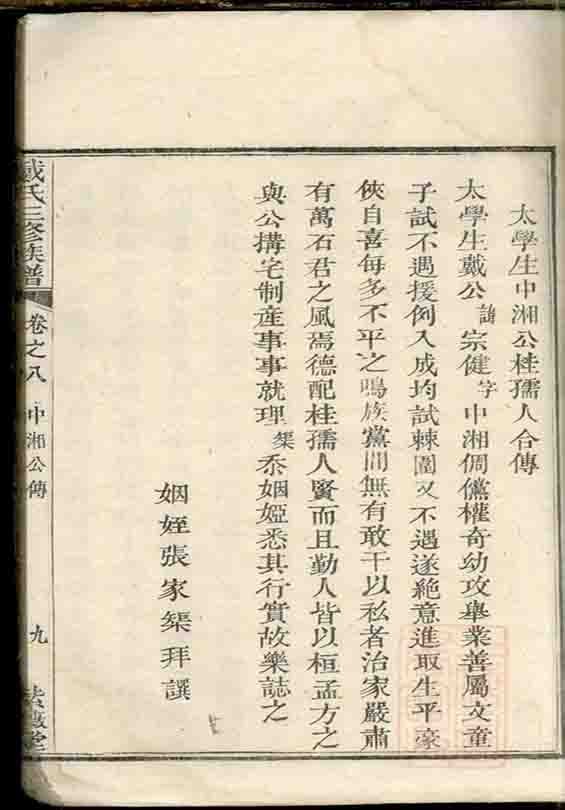 太學生中湘公桂孺人合傳
太學生戴公諱宗健字中湘倜儻權奇幼攻舉業善屬文童
子試不遇援例入成均試棘圍又不遇遂絶意進取生平豪
俠自喜每多不平之鳴族黨間無有敢干以私者治家嚴肅
有萬石君之風焉德配桂孺人賢而且勤人皆以桓孟方之
與公搆宅制産事事就理榘忝姻婭悉其行實故樂誌之
姻姪張家榘拜譔
戴氏三修族譜
卷之八
中湘公傳
九